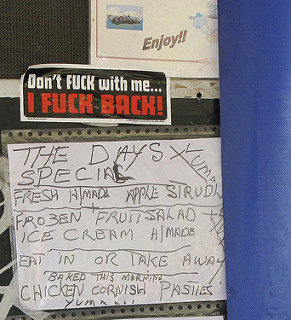 Enjoy!!
Don't FUCK with me...
I FUCK BACK!
THE DAYS YUMMY
SPECIAL
FRESH H/MADE APPLE STRUDL
FROZEN FRUIT SALAD
ICE CREAM H/MADE
EAT IN OR TAKE AWAY
BAKED THIS MORNING
CHICKEN CORNISH PASTIES